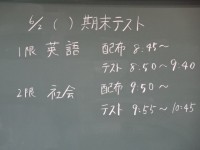 6/2 ( ) 期末テスト
1限 英語 配布 8:45〜
テスト 8:50〜9:40
2限 社会 配布 9:50〜
テスト 9:55〜10:45